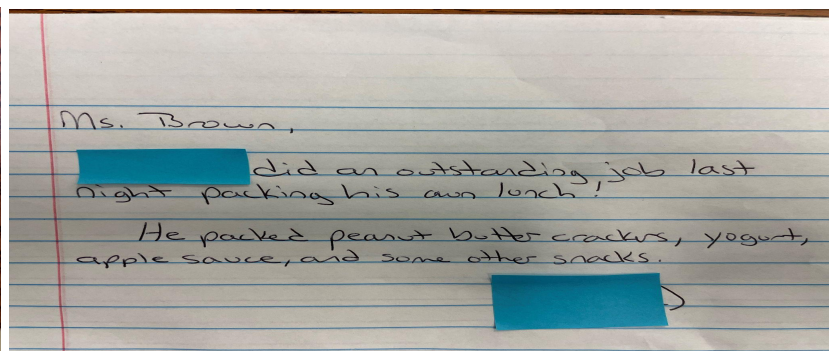 Ms. Brown,
did an outstanding job last
night packing his own lunch!
He packed peanut butter crackers, yogurt,
apple sauce, and some other snacks.